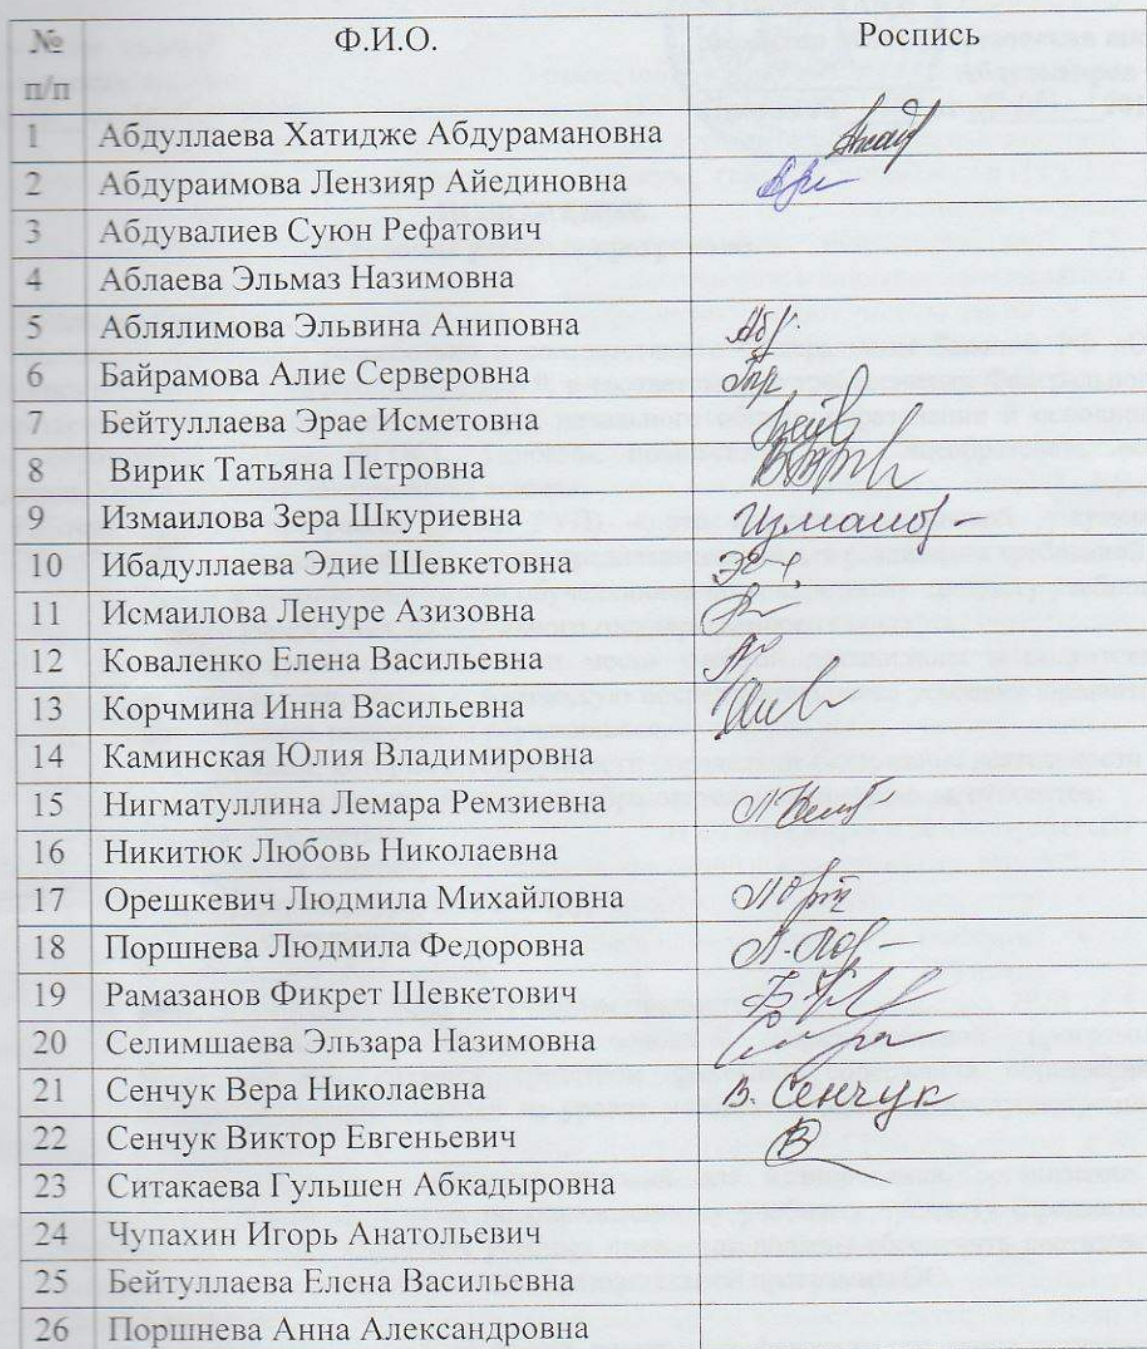 № Ф.И.О. Роспись
п/п
1 Абдуллаева Хатидже Абдурамановна
2 Абдураимова Лензияр Айединовна
3 Абдувалиев Суюн Рефатович
4 Аблаева Эльмаз Назимовна
5 Аблялимова Эльвина Аниповна
6 Байрамова Алие Серверовна
7 Бейтуллаева Эрае Исметовна
8 Вирик Татьяна Петровна
9 Измаилова Зера Шкуриевна
10 Ибадуллаева Эдие Шевкетовна
11 Исмаилова Ленуре Азизовна
12 Коваленко Елена Васильевна
13 Корчмина Инна Васильевна
14 Каминская Юлия Владимировна
15 Нигматуллина Лемара Ремзиевна
16 Никитюк Любовь Николаевна
17 Орешкевич Людмила Михайловна
18 Поршнева Людмила Федоровна
19 Рамазанов Фикрет Шевкетович
20 Селимшаева Эльзара Назимовна
21 Сенчук Вера Николаевна В. Сенчук
22 Сенчук Виктор Евгеньевич
23 Ситакаева Гульшен Абкадыровна
24 Чупахин Игорь Анатольевич
25 Бейтуллаева Елена Васильевна
26 Поршнева Анна Александровна